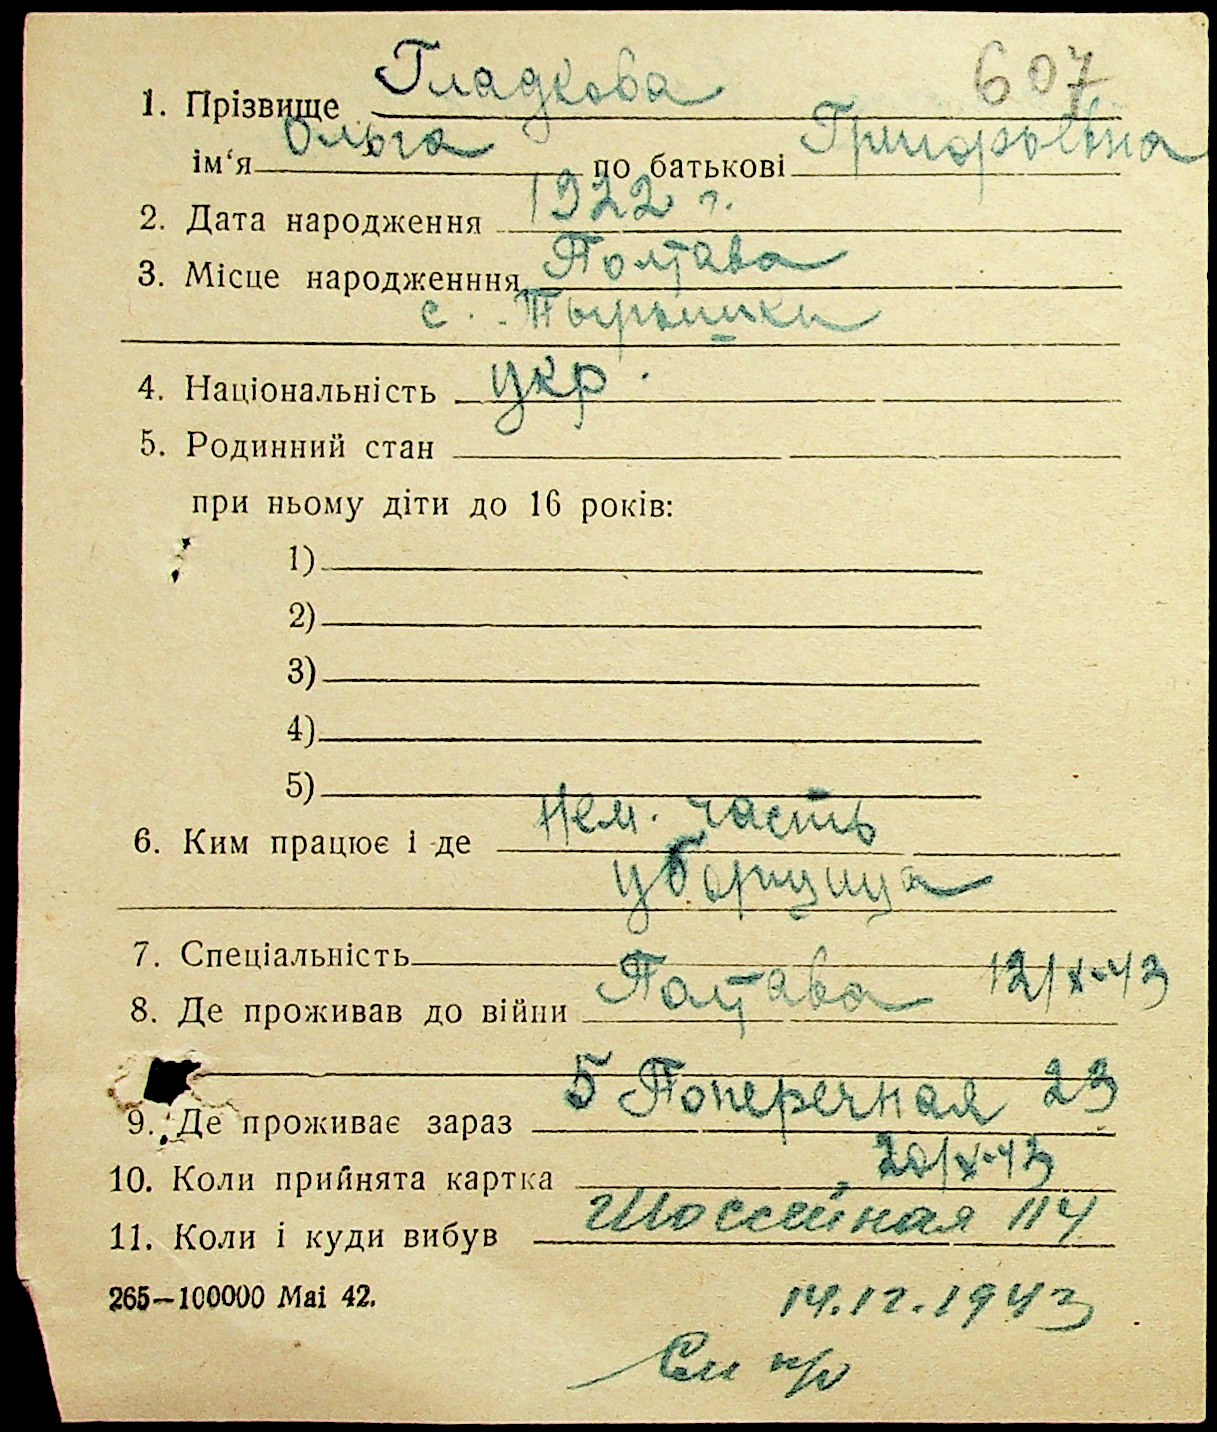 607
1. Прізвище Гладкова
ім‘я Ольга по батькові Григорьевна
2. Дата народження 1922 г.
3. Місце народженння Полтава
с. Тырышки
4. Національність укр.
5. Родинний стан
при ньому діти до 16 років:
1)
2)
3)
4)
5)
6. Ким працює і де Нем. часть
уборщица
7. Спеціальність
8. Де проживав до війни Полтава 12/X-43
5 Поперечная 23
9. Де проживає зараз
10. Коли прийнята картка 20/X-43
11. Коли і куди вибув Шоссейная 114
265—100000 Mai 42.
14.12.1943
См н/о